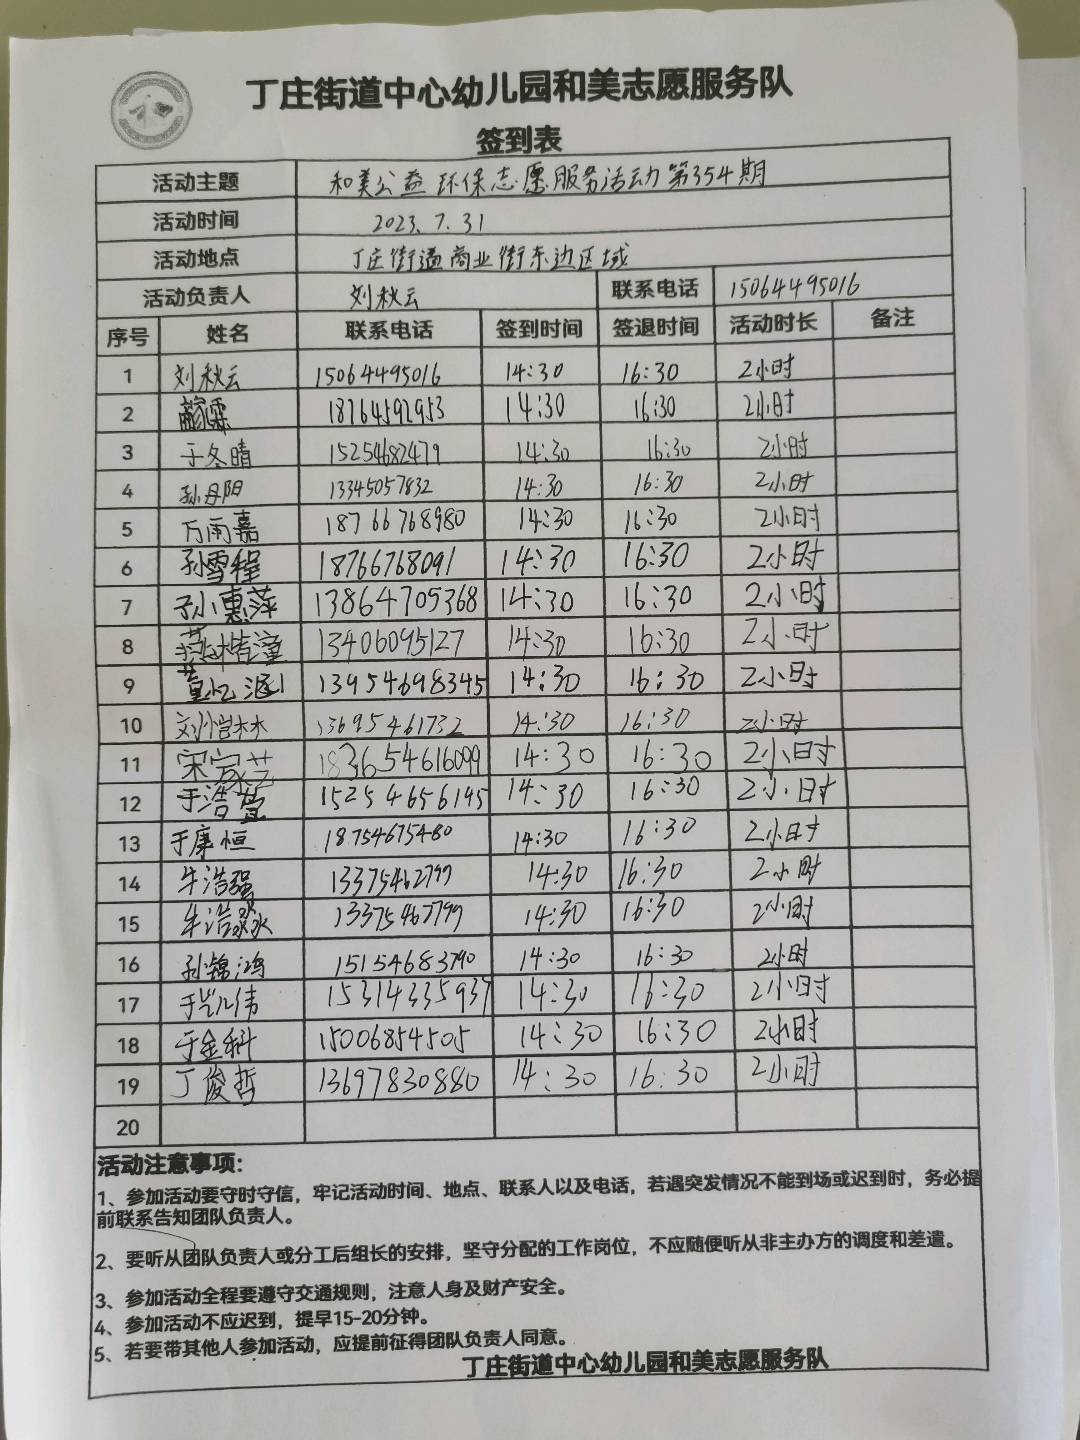 丁庄街道中心幼儿园和美志愿服务队
签到表
活动主题 和美公益环保志愿服务活动第354期
活动时间 2023.7.31
活动地点 丁庄街道商业街东边区域
活动负责人 刘秋云 联系电话 15064495016
序号 姓名 联系电话 签到时间 签退时间 活动时长 备注
1 刘秋云 15064495016 14:30 16:30 2小时
2 18764592953 14:30 16:30 2小时
3 于冬晴 15254682479 14:30 16:30 2小时
4 孙丹阳 13345057832 14:30 16:30 2小时
5 万雨嘉 18766768980 14:30 16:30 2小时
6 孙雪程 18766768091 14:30 16:30 2小时
7 孙惠萍 13864705368 14:30 16:30 2小时
8 13406095127 14:30 16:30 2小时
9 董忆涵 13954698345 14:30 16:30 2小时
10 刘恺林 13695461732 14:30 16:30 2小时
11 宋家艺 183654616099 14:30 16:30 2小时
12 于浩萱 15254656145 14:30 16:30 2小时
13 于康恒 18754675480 14:30 16:30 2小时
14 牛浩强 13375462799 14:30 16:30 2小时
15 牛浩淼 13375462799 14:30 16:30 2小时
16 孙锦鸿 15154683790 14:30 16:30 2小时
17 于凯伟 15314335937 14:30 16:30 2小时
18 于金科 15006854505 14:30 16:30 2小时
19 丁俊哲 13697830880 14:30 16:30 2小时
20
活动注意事项：
1、参加活动要守时守信，牢记活动时间、地点、联系人以及电话，若遇突发情况不能到场或迟到时，务必提
前联系告知团队负责人。
2、要听从团队负责人或分工后组长的安排，坚守分配的工作岗位，不应随便听从非主办方的调度和差遣。
3、参加活动全程要遵守交通规则，注意人身及财产安全。
4、参加活动不应迟到，提早15-20分钟。
5、若要带其他人参加活动，应提前征得团队负责人同意。
丁庄街道中心幼儿园和美志愿服务队